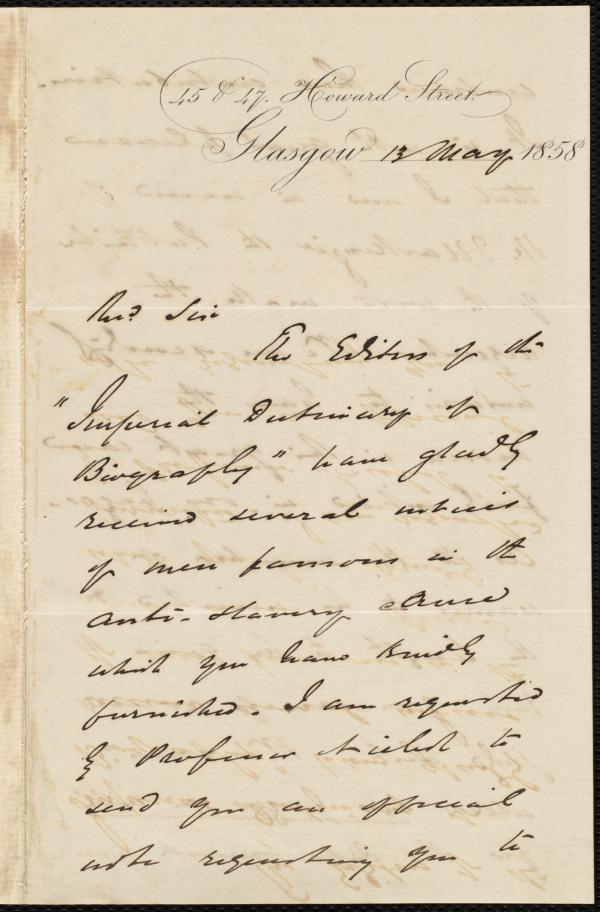 45 & 47. Howard Street.
Glasgow 13 May 1858
Revd. Sir
The Editors of the
"Imperial Dictionary of
Biography" have gladly
received several notices
of men famous in the
anti-slavery cause
which you have kindly
furnished. I am requested
by Professor Nichol to
send you an official
note requesting you to